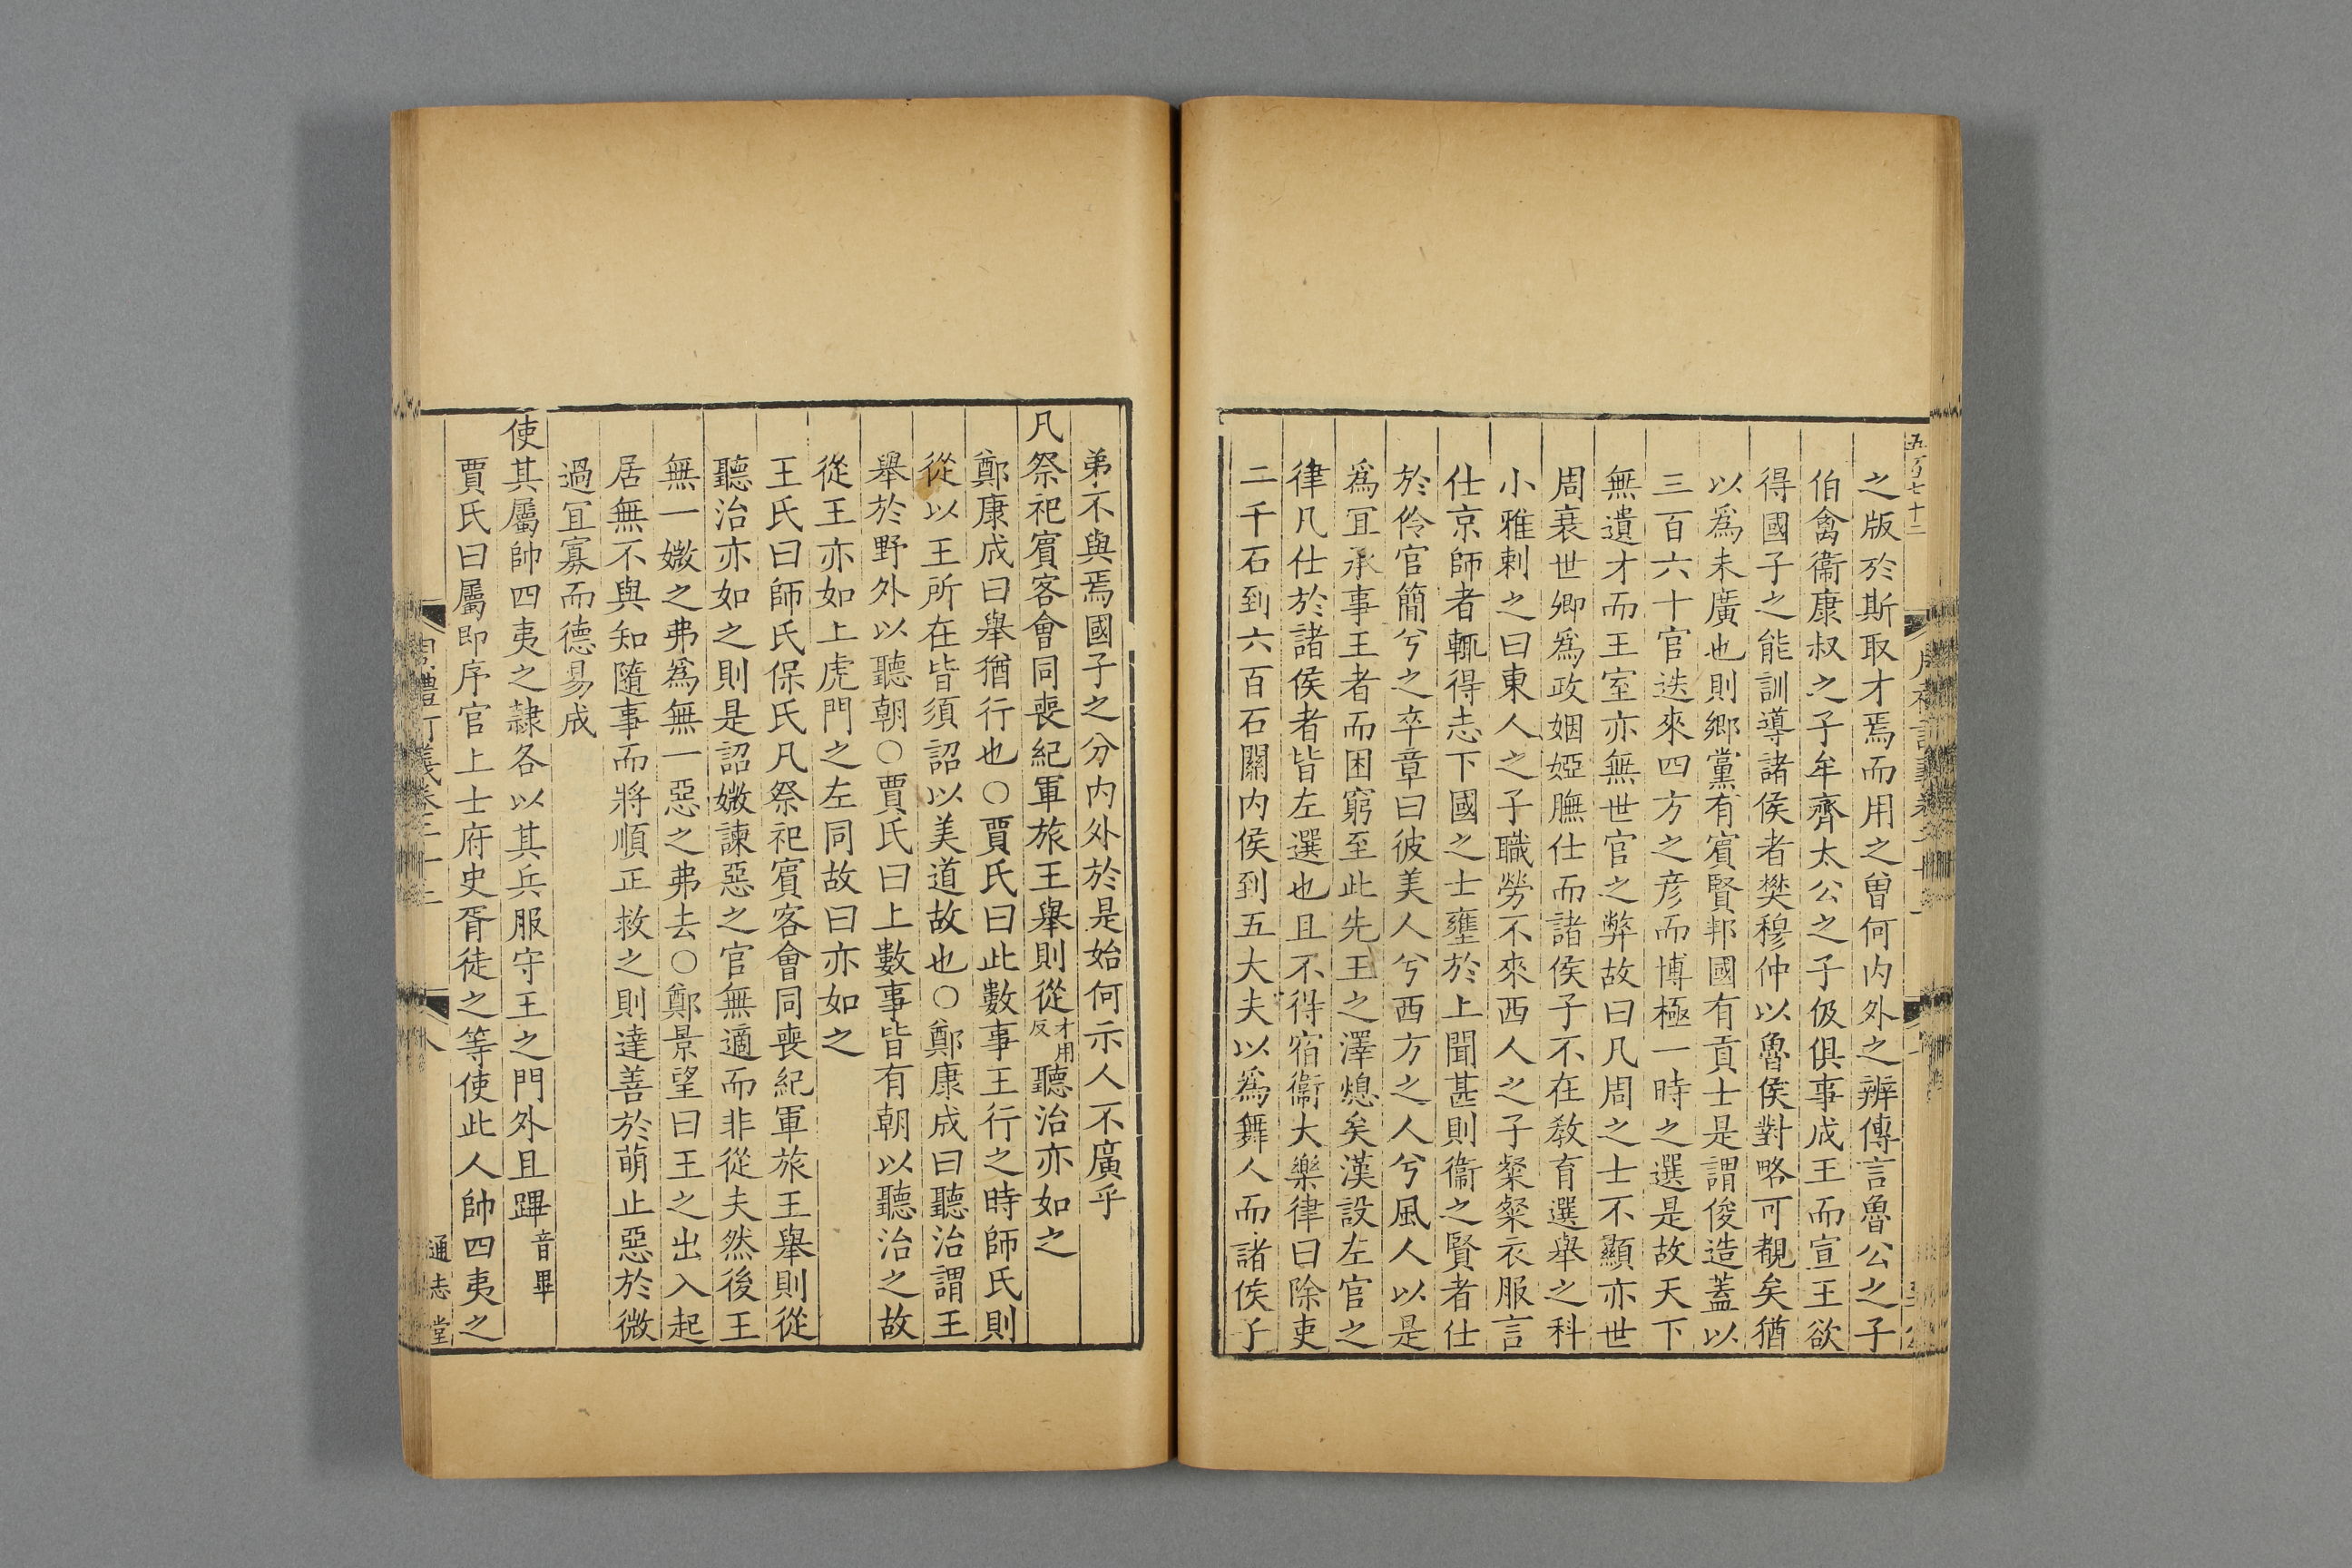 之版於斯取才焉而用之曾何内外之辨傳言魯公之子
伯禽衞康叔之子牟齊太公之子伋俱事成王而宣王欲
得國子之能訓導諸侯者樊穆仲以魯侯對略可覩矣猶
以爲未廣也則鄉黨有賓賢邦國有貢士是謂俊造蓋以
三百六十官迭來四方之彦而博極一時之選是故天下
無遺才而王室亦無世官之弊故曰凡周之士不顯亦世
周衰世卿爲政姻婭膴仕而諸侯子不在教育選舉之科
小雅刺之曰東人之子職勞不來西人之子粲粲衣服言
仕京師者輒得志下國之士壅於上聞甚則衞之賢者仕
於伶官簡兮之卒章曰彼美人兮西方之人兮風人以是
爲宜承事王者而困窮至此先王之澤熄矣漢設左官之
律凡仕於諸侯者皆左選也且不得宿衞大樂律曰除吏
二千石到六百石關内侯到五大夫以爲舞人而諸侯子
弟不與焉國子之分内外於是始何示人不廣乎
凡祭祀賓客會同喪紀軍旅王舉則從才用反聽治亦如之
鄭康成曰舉猶行也○賈氏曰此數事王行之時師氏則
從以王所在皆須詔以美道故也○鄭康成曰聽治謂王
舉於野外以聽朝○賈氏曰上數事皆有朝以聽治之故
從王亦如上虎門之左同故曰亦如之
王氏曰師氏保氏凡祭祀賓客會同喪紀軍旅王舉則從
聽治亦如之則是詔媺諫惡之官無適而非從夫然後王
無一媺之弗爲無一惡之弗去○鄭景望曰王之出入起
居無不與知隨事而將順正救之則達善於萌止惡於微
過宜寡而德易成
使其屬帥四夷之隸各以其兵服守王之門外且蹕音畢
賈氏曰屬即序官上士府史胥徒之等使此人帥四夷之
通志堂